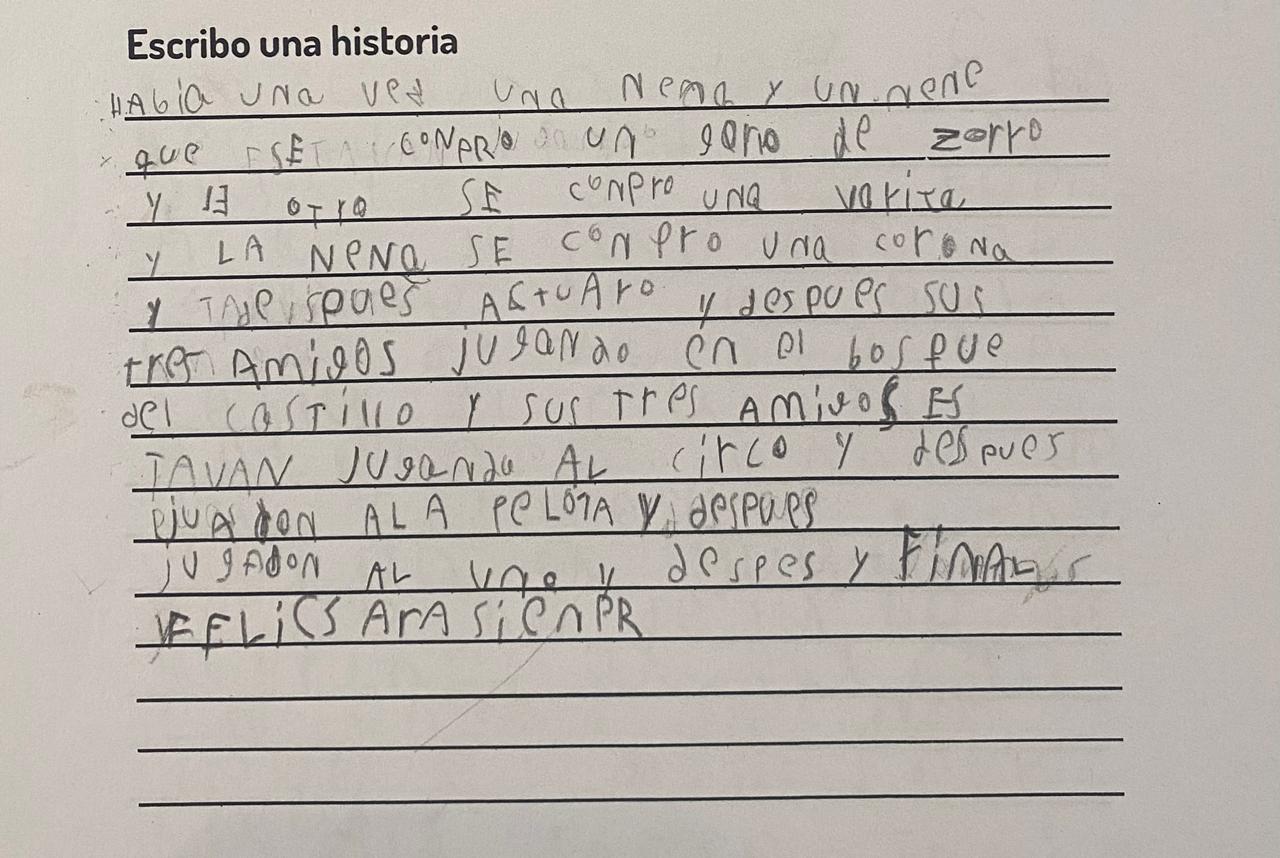 Escribo una historia
HABiA UNA VES UNA NeNa y UN nene
que SE CONPRO UN goro de zorro
y El OTrO SE CONPrO UNA VariTa
y LA NeNa SE CONPrO UNA corona
y despues ACtUAro y despues sus
tres AMigOS jUgANdo en el bosque
del CASTillO y sus Tres AMigos ES
TAVAN JUgando AL circo y despues
AL A PeLOTA y despues
jUgAdON AL UNO y despes y FiNAL
FELiCS ArA SiENPR